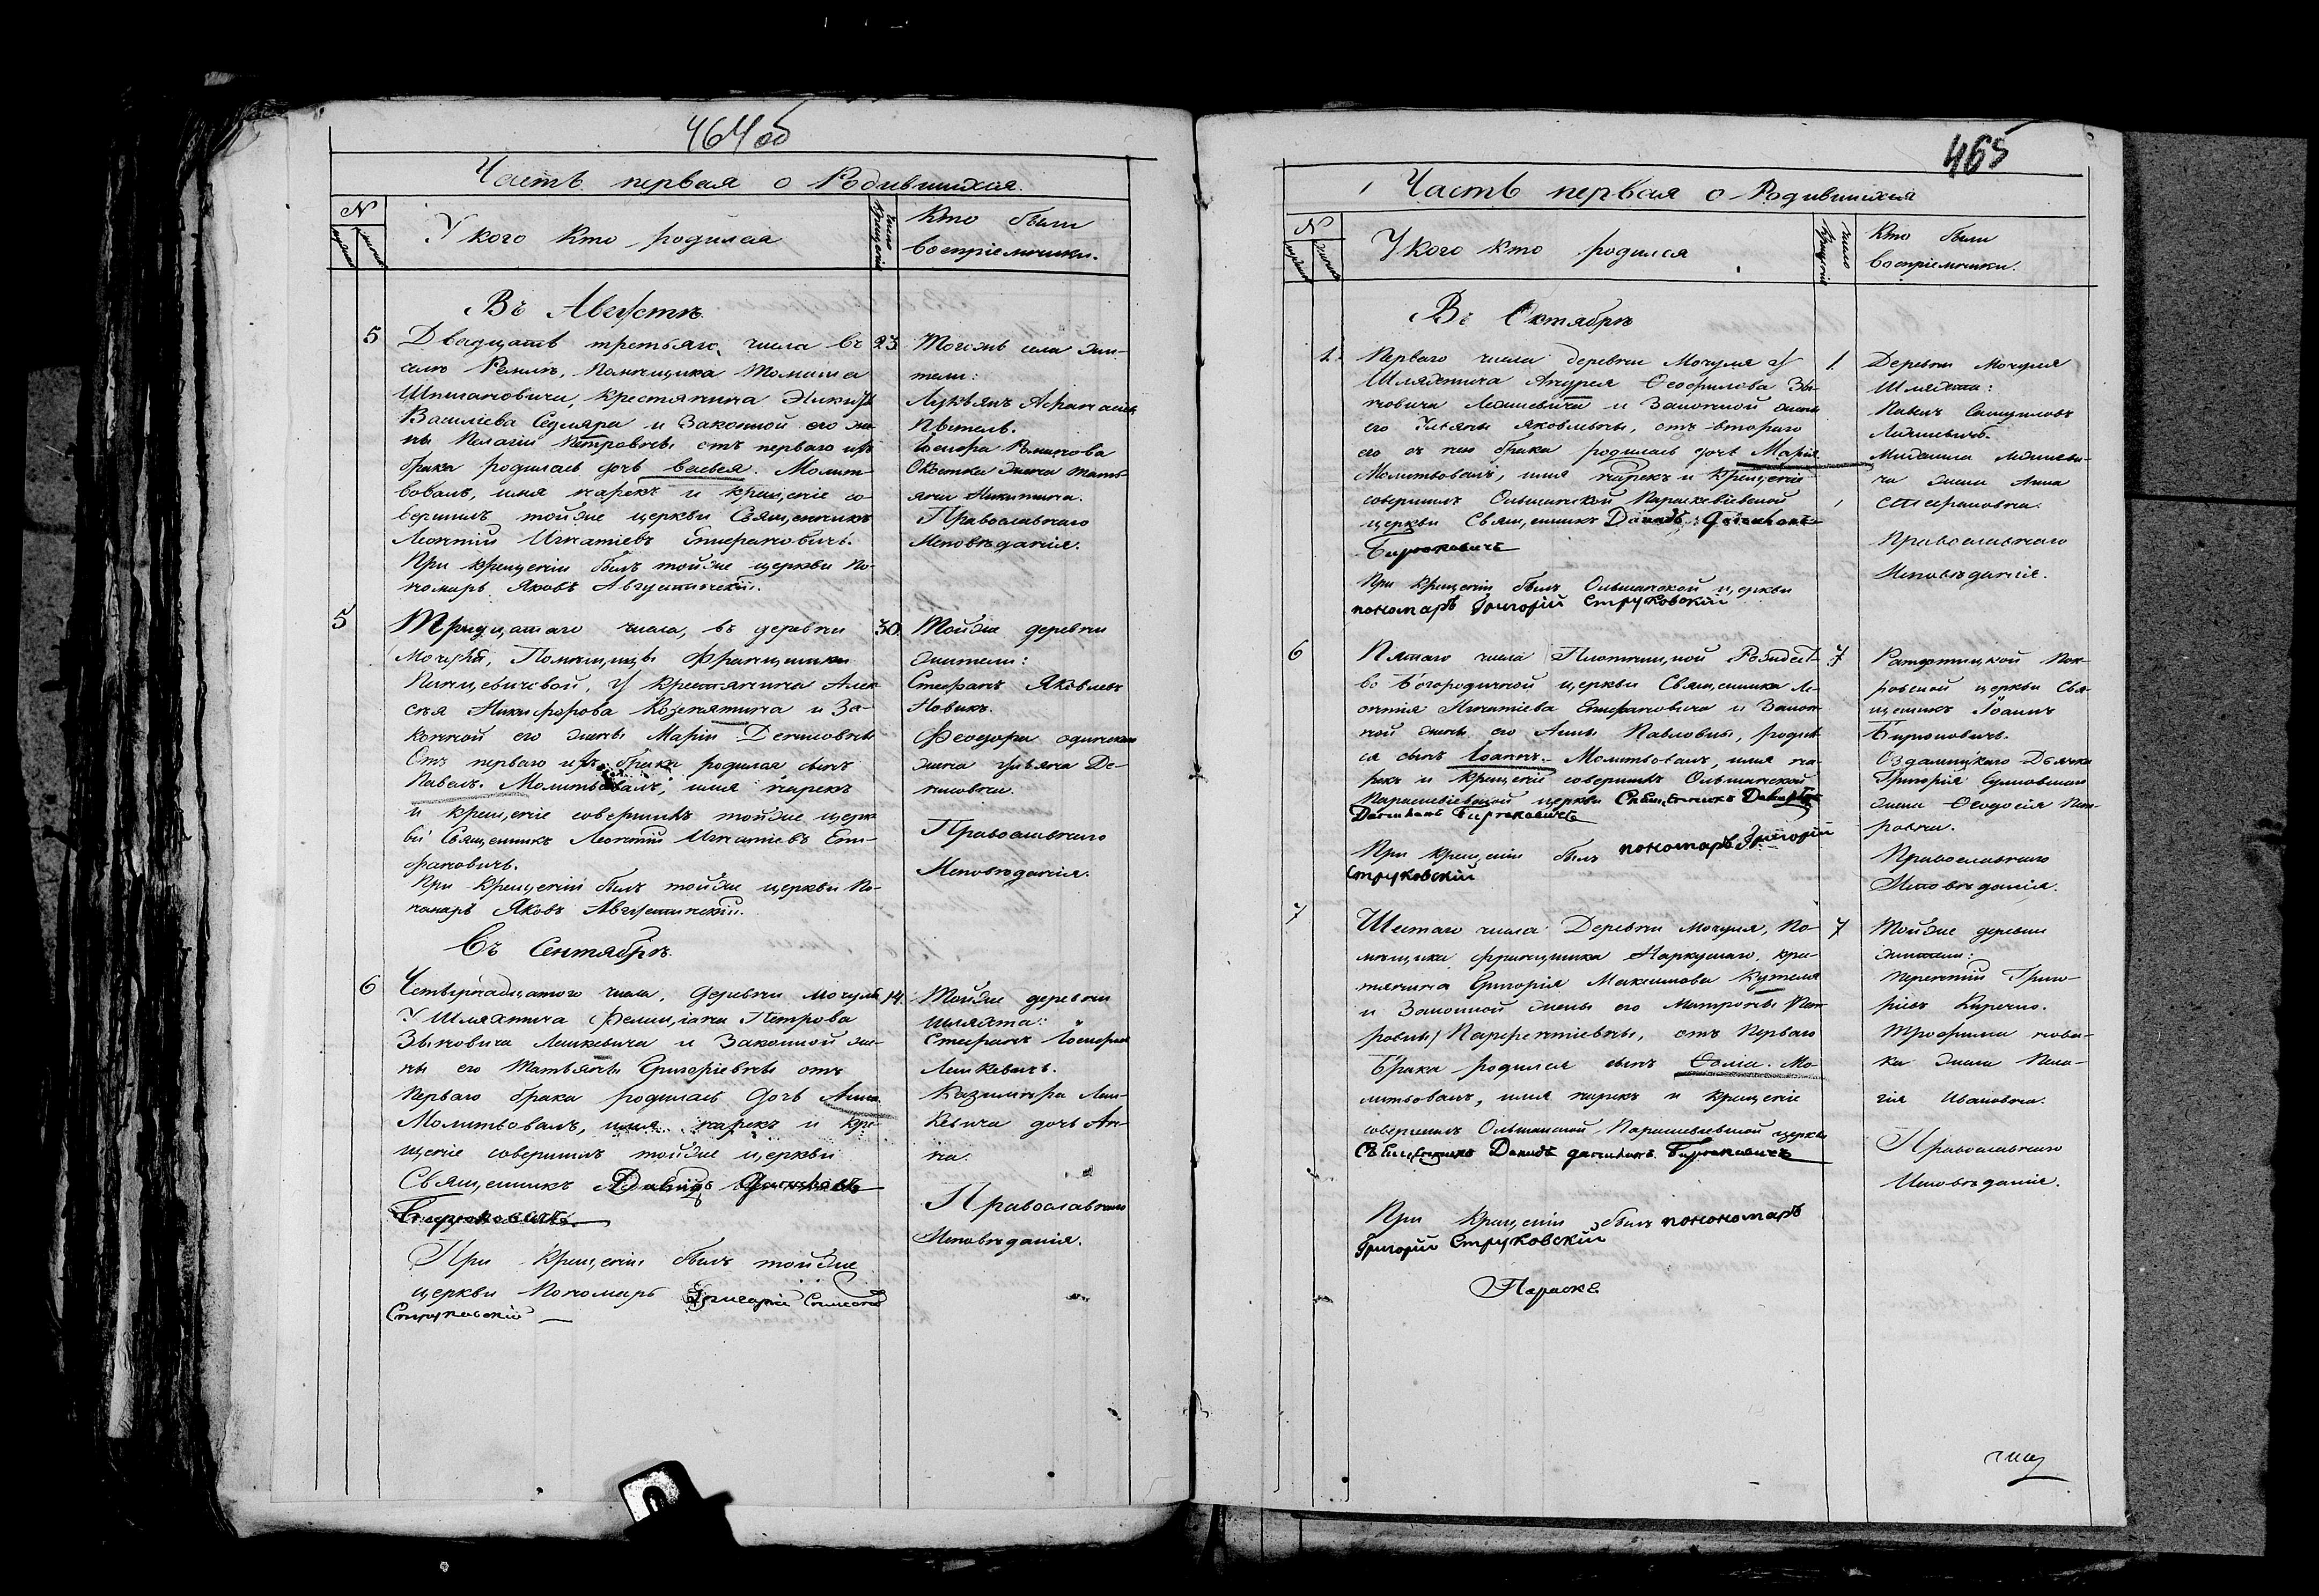 464 об
Часть первая о Родившихся.
N
У кого кто родился
Число крещенія
Кто были
воспріемники.
Въ Августѣ.
5
Двадцать третьяго, числа въ
селѣ Ремлѣ, Помѣщика Томаша
крестянина
Василіева Седляра и Законной его же-
ны Пелагіи Петровны отъ перваго ихъ
брака родилась дочь. Молит
вовалъ, имя нарекъ и крещеніе со-
вершилъ тойже церкви Священникъ
Леонтій Игнатіевъ Епифановичъ.
При крещеніи былъ тойже церкви По-
номарь Яковъ Августиновскій.
23.
Тогожъ села жи-
тели:
Лукьянъ
Іосифа Романова
жена Тать-
яна Никитина.
Православнаго
Исповѣданія.
5
Тридцатаго числа, въ деревни
Мочуля, Помѣщицы Францишки
У крестянина Алек
сѣя Никифорова и За-
конной его жены Маріи Денисовны
Отъ перваго ихъ брака родился сынъ
Павелъ. Молитвовалъ, имя нарекъ
и крещеніе совершилъ тойже церк
ви Священникъ Леонтій Игнатіевъ Епи-
фановичъ.
При крещеніи былъ тойже церкви По-
номарь Яковъ Августиновскій.
30.
Тойже деревни
жители:
Стефанъ Яковлевъ
Новикъ.
Феодора
жена Ульяна Де-
нисовна.
Православнаго
Исповѣданія.
Въ Сентябрѣ.
6
Четырнадцатого числа, деревни Мочуля
У Шляхтича Фелиціана Петрова
Зѣновича Лешкевича и Законной же-
ны его Татьяны Григоріевны отъ
перваго брака родилась дочь Анна.
Молитвовалъ, имя нарекъ и кре-
щеніе совершилъ тойже церкви
Священникъ Давидъ
Бирюковичъ.
При крещеніи былъ тойже
церкви Пономарь Григорій
Струковскій
14.
Тойже деревни
шляхта:
Стефанъ Іосифов
Лешкевичъ.
Казимѣра Леш-
кевича дочь Ан-
на.
Православнаго
Исповѣданія.
465
Часть первая о Родившихся
N
У кого кто родился
число крещенія
Кто были
воспріемники.
Въ Октябрѣ
1.
Перваго числа деревни Мочуля У
Шляхтича Андрея Ѳеофилова Зѣ-
новича Лешкевича и Законной жены
его Ульяны Яковлевны, отъ втораго
его съ нею брака родилась дочь Марія
Молитвовалъ, имя нарекъ и крещеніе
совершилъ Ольшанской Параскевіевской
церкви Священникъ Давидъ
Бирюковичъ
При крещеніи былъ Ольшанской церкви
пономаръ Григорій Струковскій
1.
Деревни Мочуля
Шляхта:
Павелъ
Лешкевичъ.
Михаила Лешкеви-
ча жена Анна
Стефановна.
Православнаго
Исповѣданія.
6
Пятаго числа Плотницкой Рождест-
во Богородичной церкви Священника Ле-
онтія Игнатіева Епифановича и Закон
ной жены его Анны Павловны, родил
ся сынъ Іоаннъ. Молитвовалъ, имя на-
рекъ и крещеніе совершилъ Ольшанской
Параскевіевской церкви Священникъ Давидъ
Бирюковичъ
При крещеніи былъ пономаръ Григорій
Струковскій
7
Пок-
ровской церкви Свя-
щенникъ Іоаннъ
Бирюковичъ.
Дьячка
Григорія
жена Ѳеодосія Пет-
ровна.
Православнаго
Исповѣданія.
7
Шестаго числа Деревни Мочуля, По-
мѣщика Францишка кре-
тянина Григорія Максимова
и Законной жены его Матроны
Парфентіевны, отъ Перваго
брака родился сынъ Ѳома. Мо-
литвовалъ, имя нарекъ и крещеніе
совершилъ Ольшанской Параскевіевской церкви
Священникъ Давидъ Бирюковичъ
При крещеніи былъ понономаръ
Григорій Струковскій
Параске
7
Тойже деревни
жители:
Терентій Григо-
ріевъ Киречко.
Трофима Нови-
ка жена Пела-
гія Ивановна.
Православнаго
Исповѣданія.